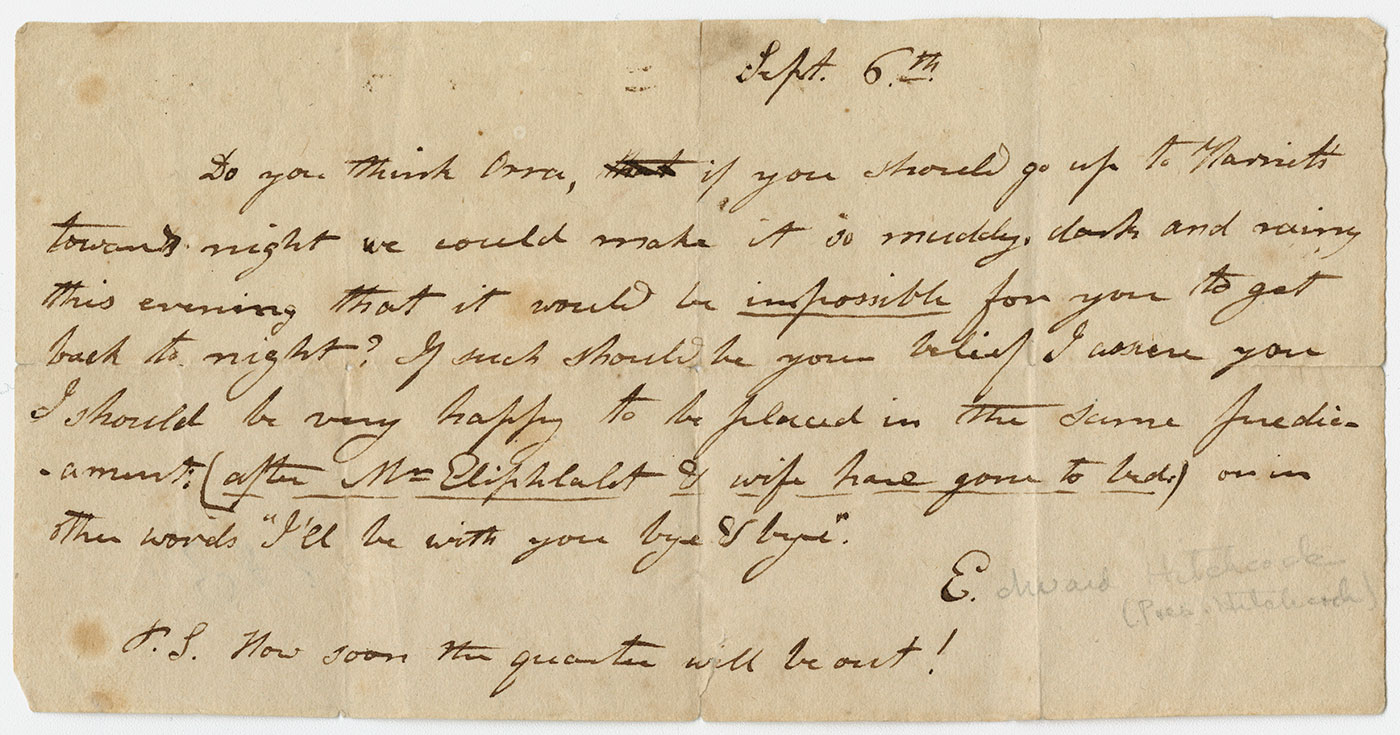 Sept. 6.th
Do you think Orra, that if you should go up to Harriets
towards night we could make it so muddy, dark and rainy
this evening that it would be impossible for you to get
back to night? If such should be your belief I assure you
I should be very happy to be placed in the same predic-
-ament: (after Mr Eliphlalet & wife have gone to bed.) or in
other words "I'll be with you bye & bye".
E.dward Hitchcock
(Pres. Hitchcock)
P.S. How soon the quarter will be out!